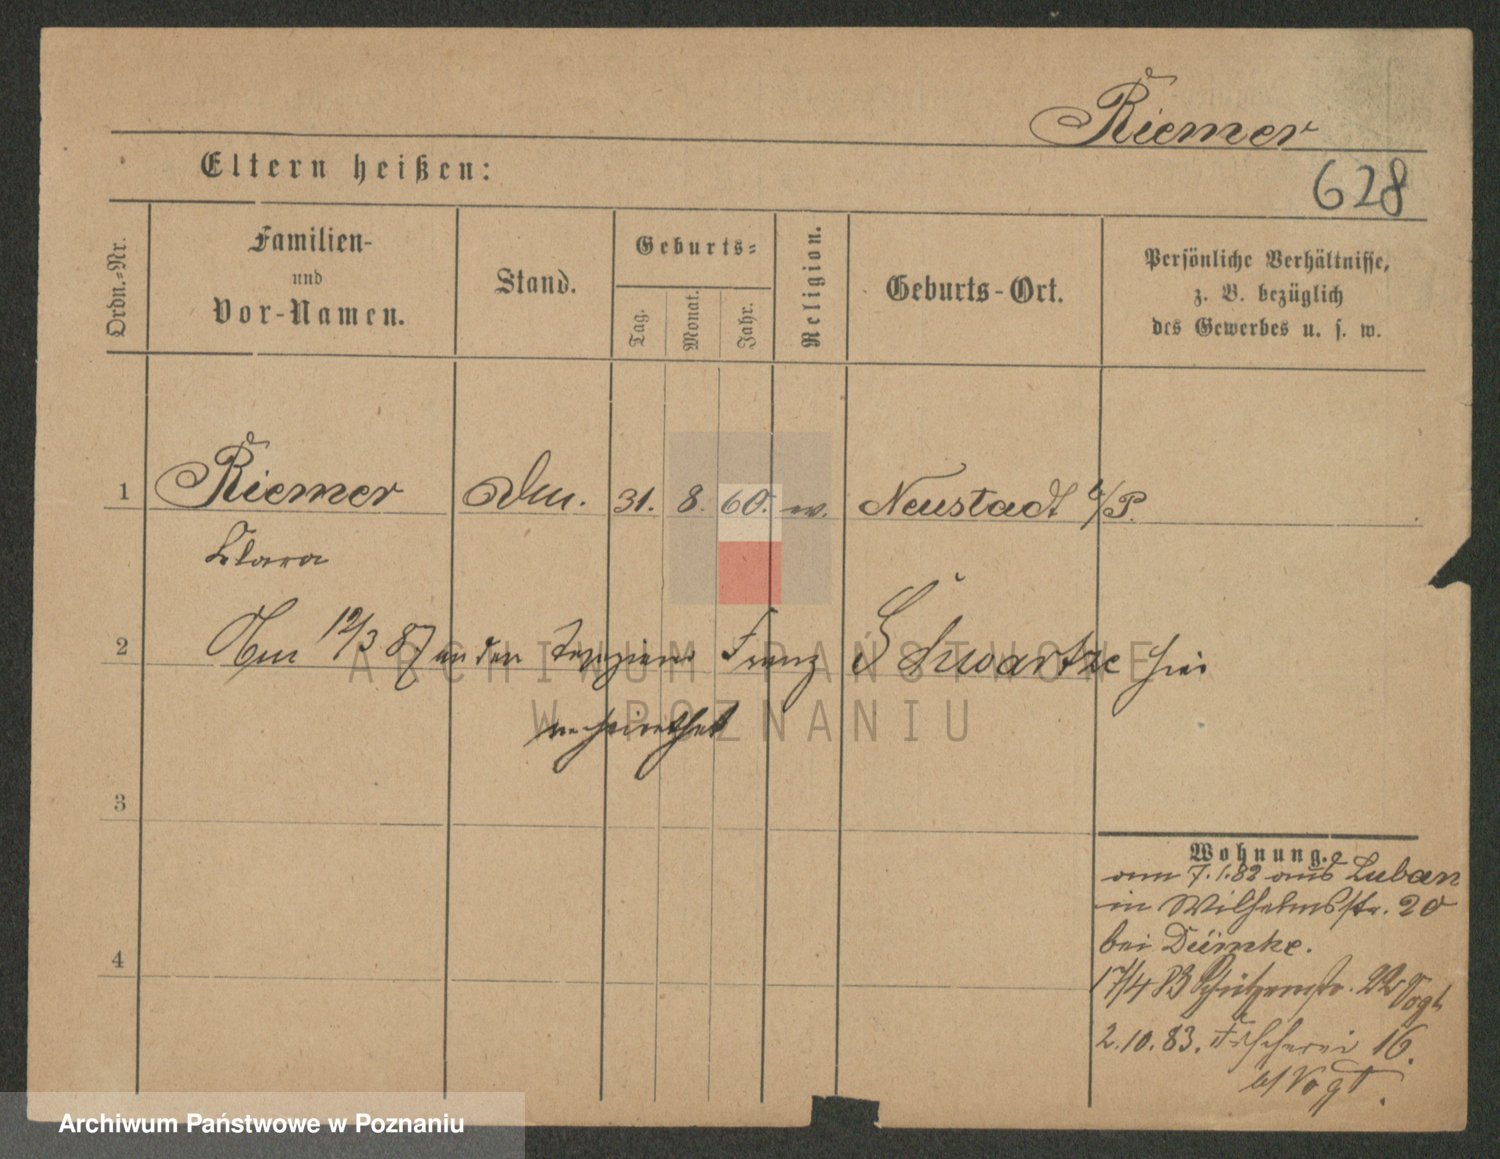 Riemer
628
Eltern heißen:
Ordn.-Nr.
Familien-
und
Vor-Namen.
Stand.
Geburts-
Tag.
Monat.
Jahr.
Religion.
Geburts-Ort.
Persönliche Verhältnisse,
z. B. bezüglich
des Gewerbes u. s. w.
1 Riemer 31. 8. 60. Neustadt b/P.
Clara
2 Am 12/3 87 an den Franz Schwartze hier
verheirathet
3
4
Wohnung.
am 7.1.82 aus Luban
in Wilhelmsstr. 20
bei Dümke.
17/4 83 Schützenstr. 22 Vogt
2.10.83. Fischerei 16.
b/ Vogt.
ARCHIWUM PAŃSTWOWE
W POZNANIU
Archiwum Państwowe w Poznaniu